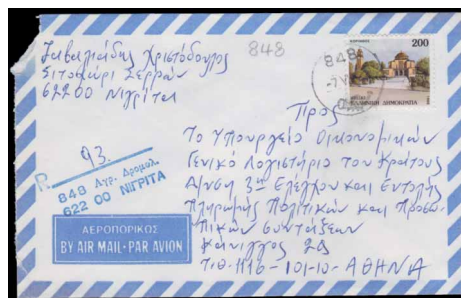 Ζαβαλιάδης Χριστόδουλος
Σιτοχώρι Σερρών
62200 Νιγρίτα
848
848
200
ΕΛΛΗΝΙΚΗ ΔΗΜΟΚΡΑΤΙΑ
Προς
Το Υπουργείο Οικονομικών
Γενικό Λογιστήριο του Κράτους
Δ/νση 3ης Ελέγχου και Εντολής
Πληρωμής Πολιτικών και Προσω-
πικών συντάξεων
Κάνιγγος 29
Τ.Θ-1116-101-10-ΑΘΗΝΑ
R 93.
848 Αγρ. Δρομολ.
622 00 ΝΙΓΡΙΤΑ
ΑΕΡΟΠΟΡΙΚΟΣ
BY AIR MAIL·PAR AVION